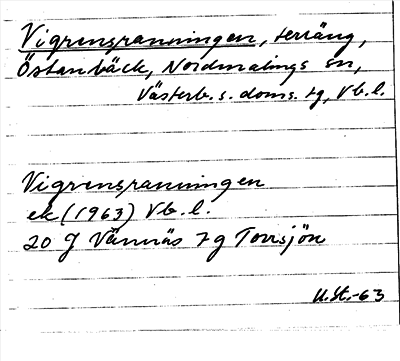 Vigrensranningen, terräng,
Östanbäck, Nordmalings sn,
Västerb. s. doms. tg, Vb. l.
Vigrensranningen
ek (1963) Vb. l.
20 J Vännäs 7 g Torrsjön
U.St.-63